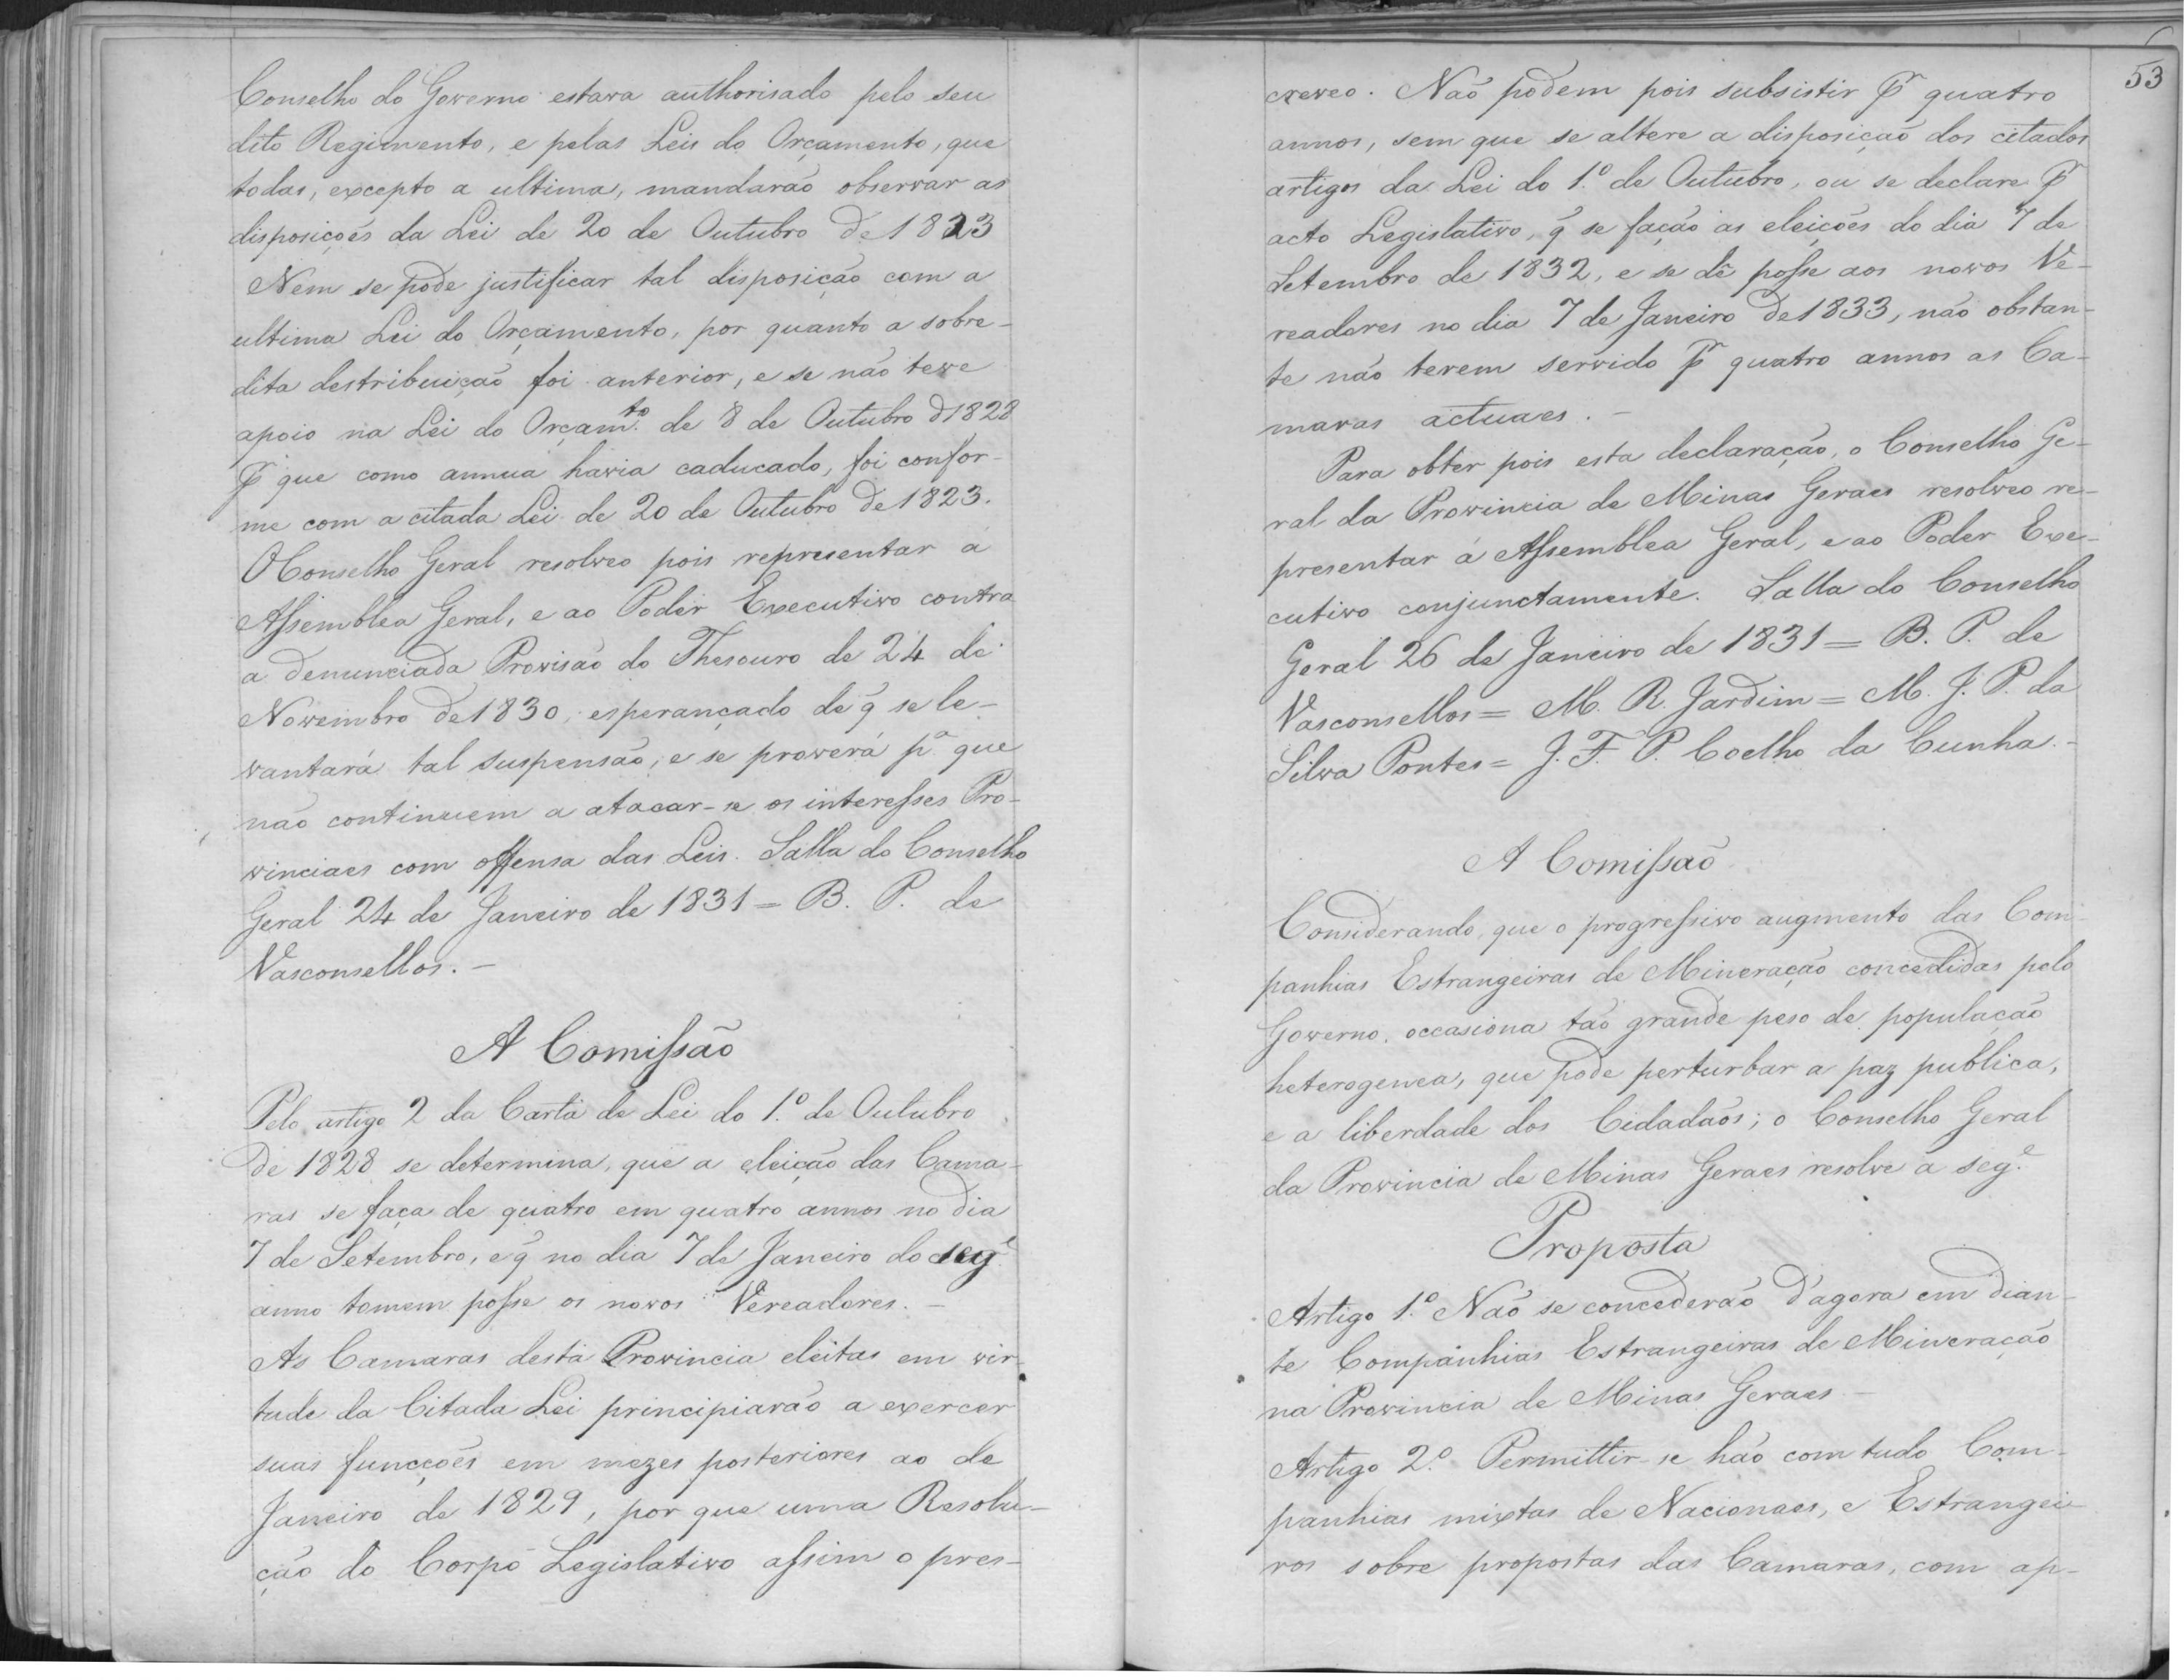 Conselho do Governo estava authorisado pelo seu
dito Regimento, e pelas Leis do Orçamento, que
todas, excepto a ultima, mandarão observar as
disposições da Lei de 20 de Outubro de 1823
Nem se pode justificar tal disposição com a
ultima Lei do Orçamento, por quanto a sobre-
dita destribuição foi anterior, e se não teve
apoio na Lei do Orçam.to de 8 de Outubro d 1828
pr que como annua havia caducado, foi confor-
me com a citada Lei de 20 de Outubro de 1823.
O Conselho Geral resolveo pois representar a
Assemblea Geral, e ao Poder Executivo contra
a denunciada Provisão do Thesouro de 24 de
Novembro de 1830, esperançado de q̃ se le-
vantará tal suspensão, e se proverá p.a que
não continuem a atacar-se os interesses Pro-
vinciaes com offensa das Leis. Salla do Conselho
Geral 24 de Janeiro de 1831 = B. P. de
Vasconsellos. –
A Comissão
Pelo artigo 2 da Carta de Lei do 1.º de Outubro
de 1828 se determina, que a eleição das Cama-
ras se faça de quatro em quatro annos no dia
7 de Setembro, e q̃ no dia 7 de Janeiro do seg.e
anno tomem posse os novos Vereadores. –
As Camaras desta Provincia eleitas em vir-
tude da Citada Lei principiarão a exercer
suas funcções em mezes posteriores ao de
Janeiro de 1829, por que uma Resolu-
ção do Corpo Legislativo assim o pres-
53
creveo. Não podem pois subsistir pr quatro
annos, sem que se altere a disposição dos citados
artigos da Lei do 1.º de Outubro, ou se declare pr
acto Legislativo, q̃ se fação as eleições do dia 7 de
Setembro de 1832, e se dê posse aos novos Ve-
readores no dia 7 de Janeiro de 1833, não obstan-
te não terem servido pr quatro annos as Ca-
maras actuaes. –
Para obter pois esta declaração, o Conselho Ge-
ral da Provincia de Minas Geraes resolveo re-
presentar á Assemblea Geral, e ao Poder Exe-
cutivo conjunctamente. Salla do Conselho
Geral 26 de Janeiro de 1831 = B. P. de
Vasconsellos = M. R. Jardim = M. J. P. da
Silva Pontes = J. F. P. Coelho da Cunha. –
A Comissão
Considerando, que o progressivo augmento das Com-
panhias Estrangeiras de Mineração concedidas pelo
Governo, occasiona tão grande peso de população
heterogenea, que pode perturbar a paz publica,
e a liberdade dos Cidadãos; o Conselho Geral
da Provincia de Minas Geraes resolve a seg.e
Proposta
Artigo 1.º Não se concederão d'agora em dian-
te Companhias Estrangeiras de Mineração
na Provincia de Minas Geraes –
Artigo 2.º Permittir-se hão com tudo Com-
panhias mixtas de Nacionaes, e Estrangei-
ros sobre propostas das Camaras, com ap-